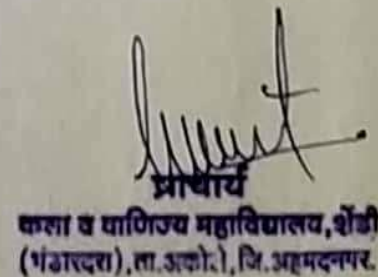 प्राचार्य
कला व वाणिज्य महाविद्यालय, शेंडी
(भंडारदरा), ता.अकोले, जि.अहमदनगर.